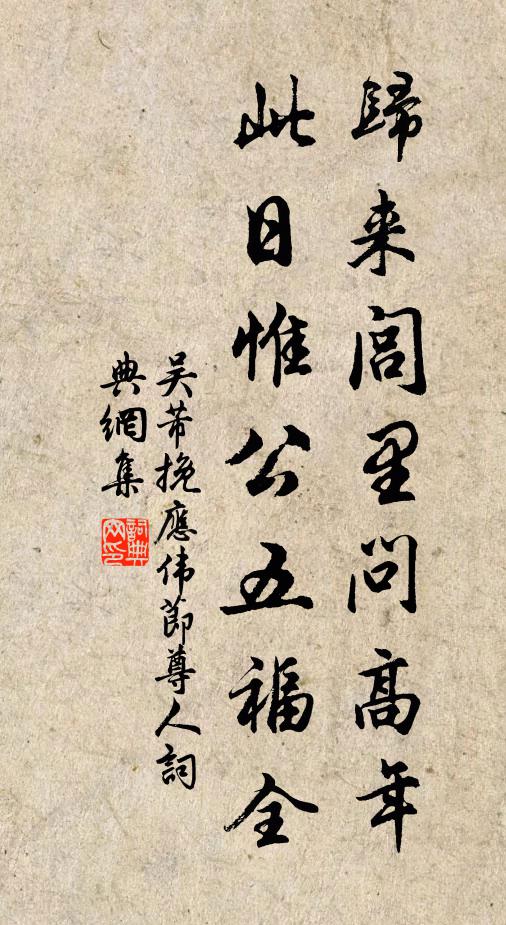 歸来閭里問高年
此日惟公五福全
吴芾挽應伟節尊人詞
典網集
詞典
网印